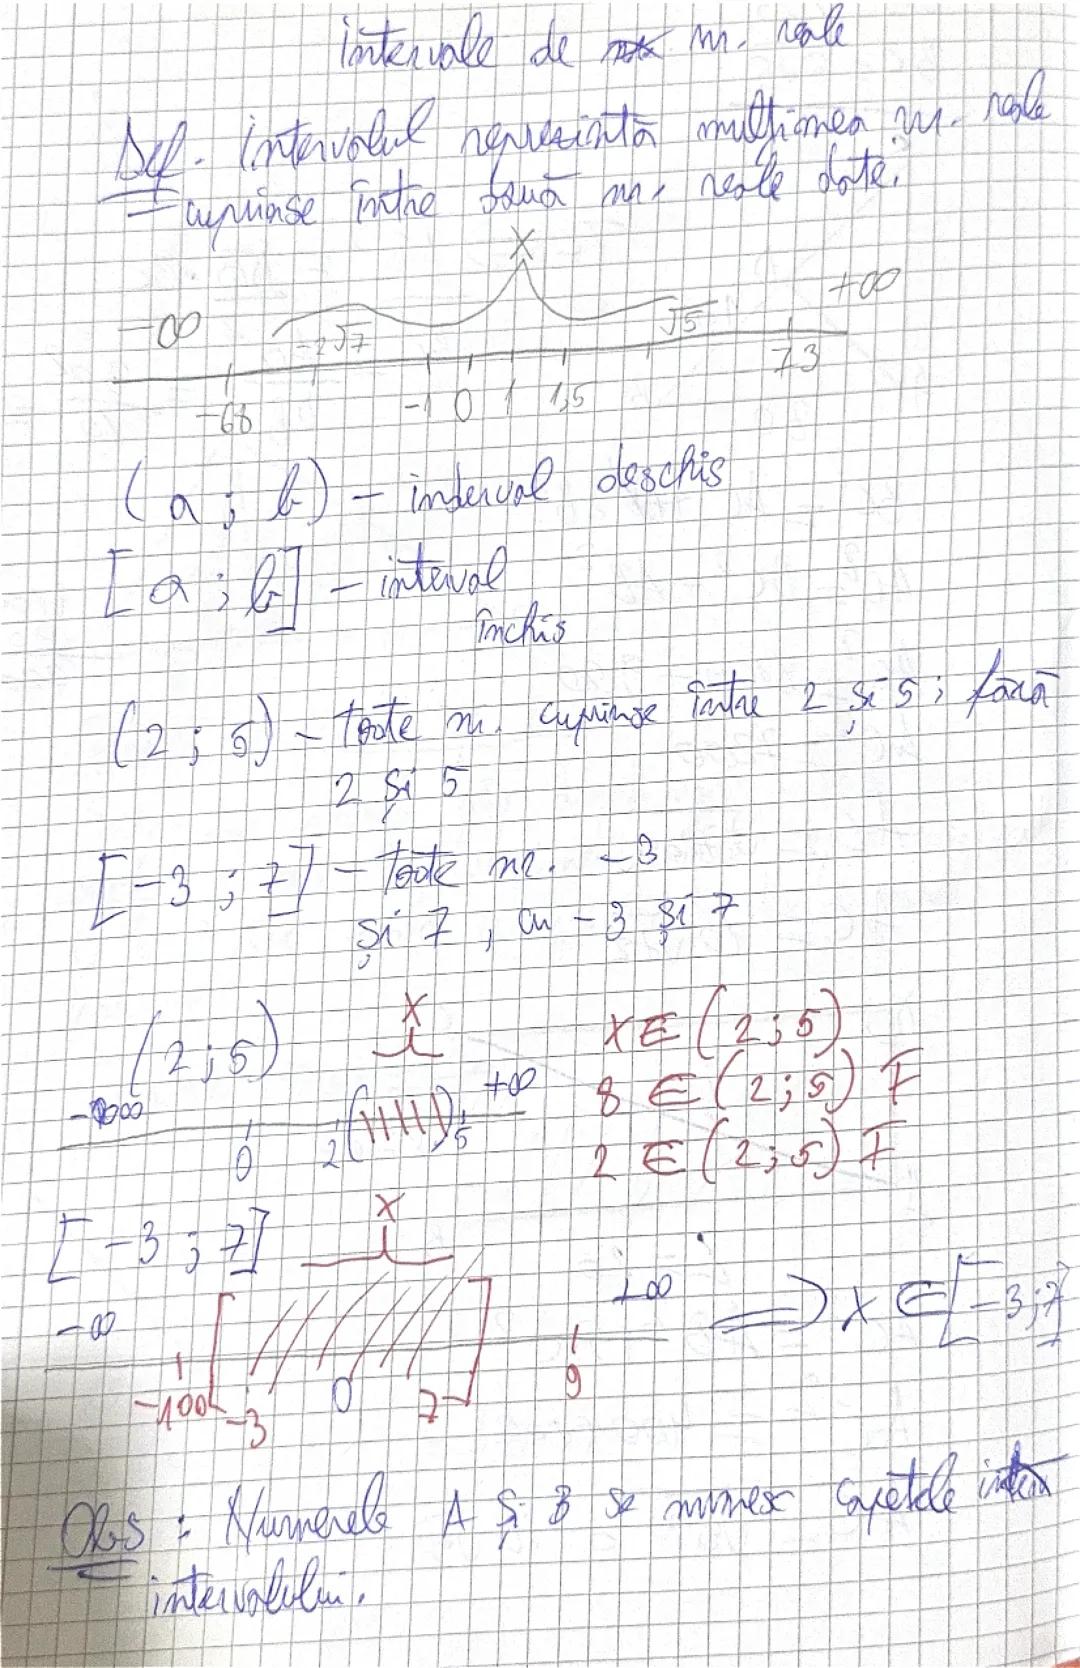 intervale de nr. reale
Def. intervalul reprezintă mulțimea nr. reale
cuprinse între două nr. reale date.
x
-∞ -2√7 √5 +∞
-68 -1 0 1 1,5 73
(a ; b) - interval deschis
[a ; b] - interval
închis
(2 ; 5) - toate nr. cuprinse între 2 și 5 ; fără
2 și 5
[-3 ; 7] - toate nr. -3
și 7 , cu -3 și 7
(2 ; 5) x x ∈ (2 ; 5)
-∞ 0 2 ( ) 5 +∞ 8 ∈ (2 ; 5) F
2 ∈ (2 ; 5) F
[-3 ; 7] x
-∞ +∞ ⟹ x ∈ [-3 ; 7]
-100 [ -3 0 7 ] 9
Obs : Numerele A și B se numesc capetele
intervalului.